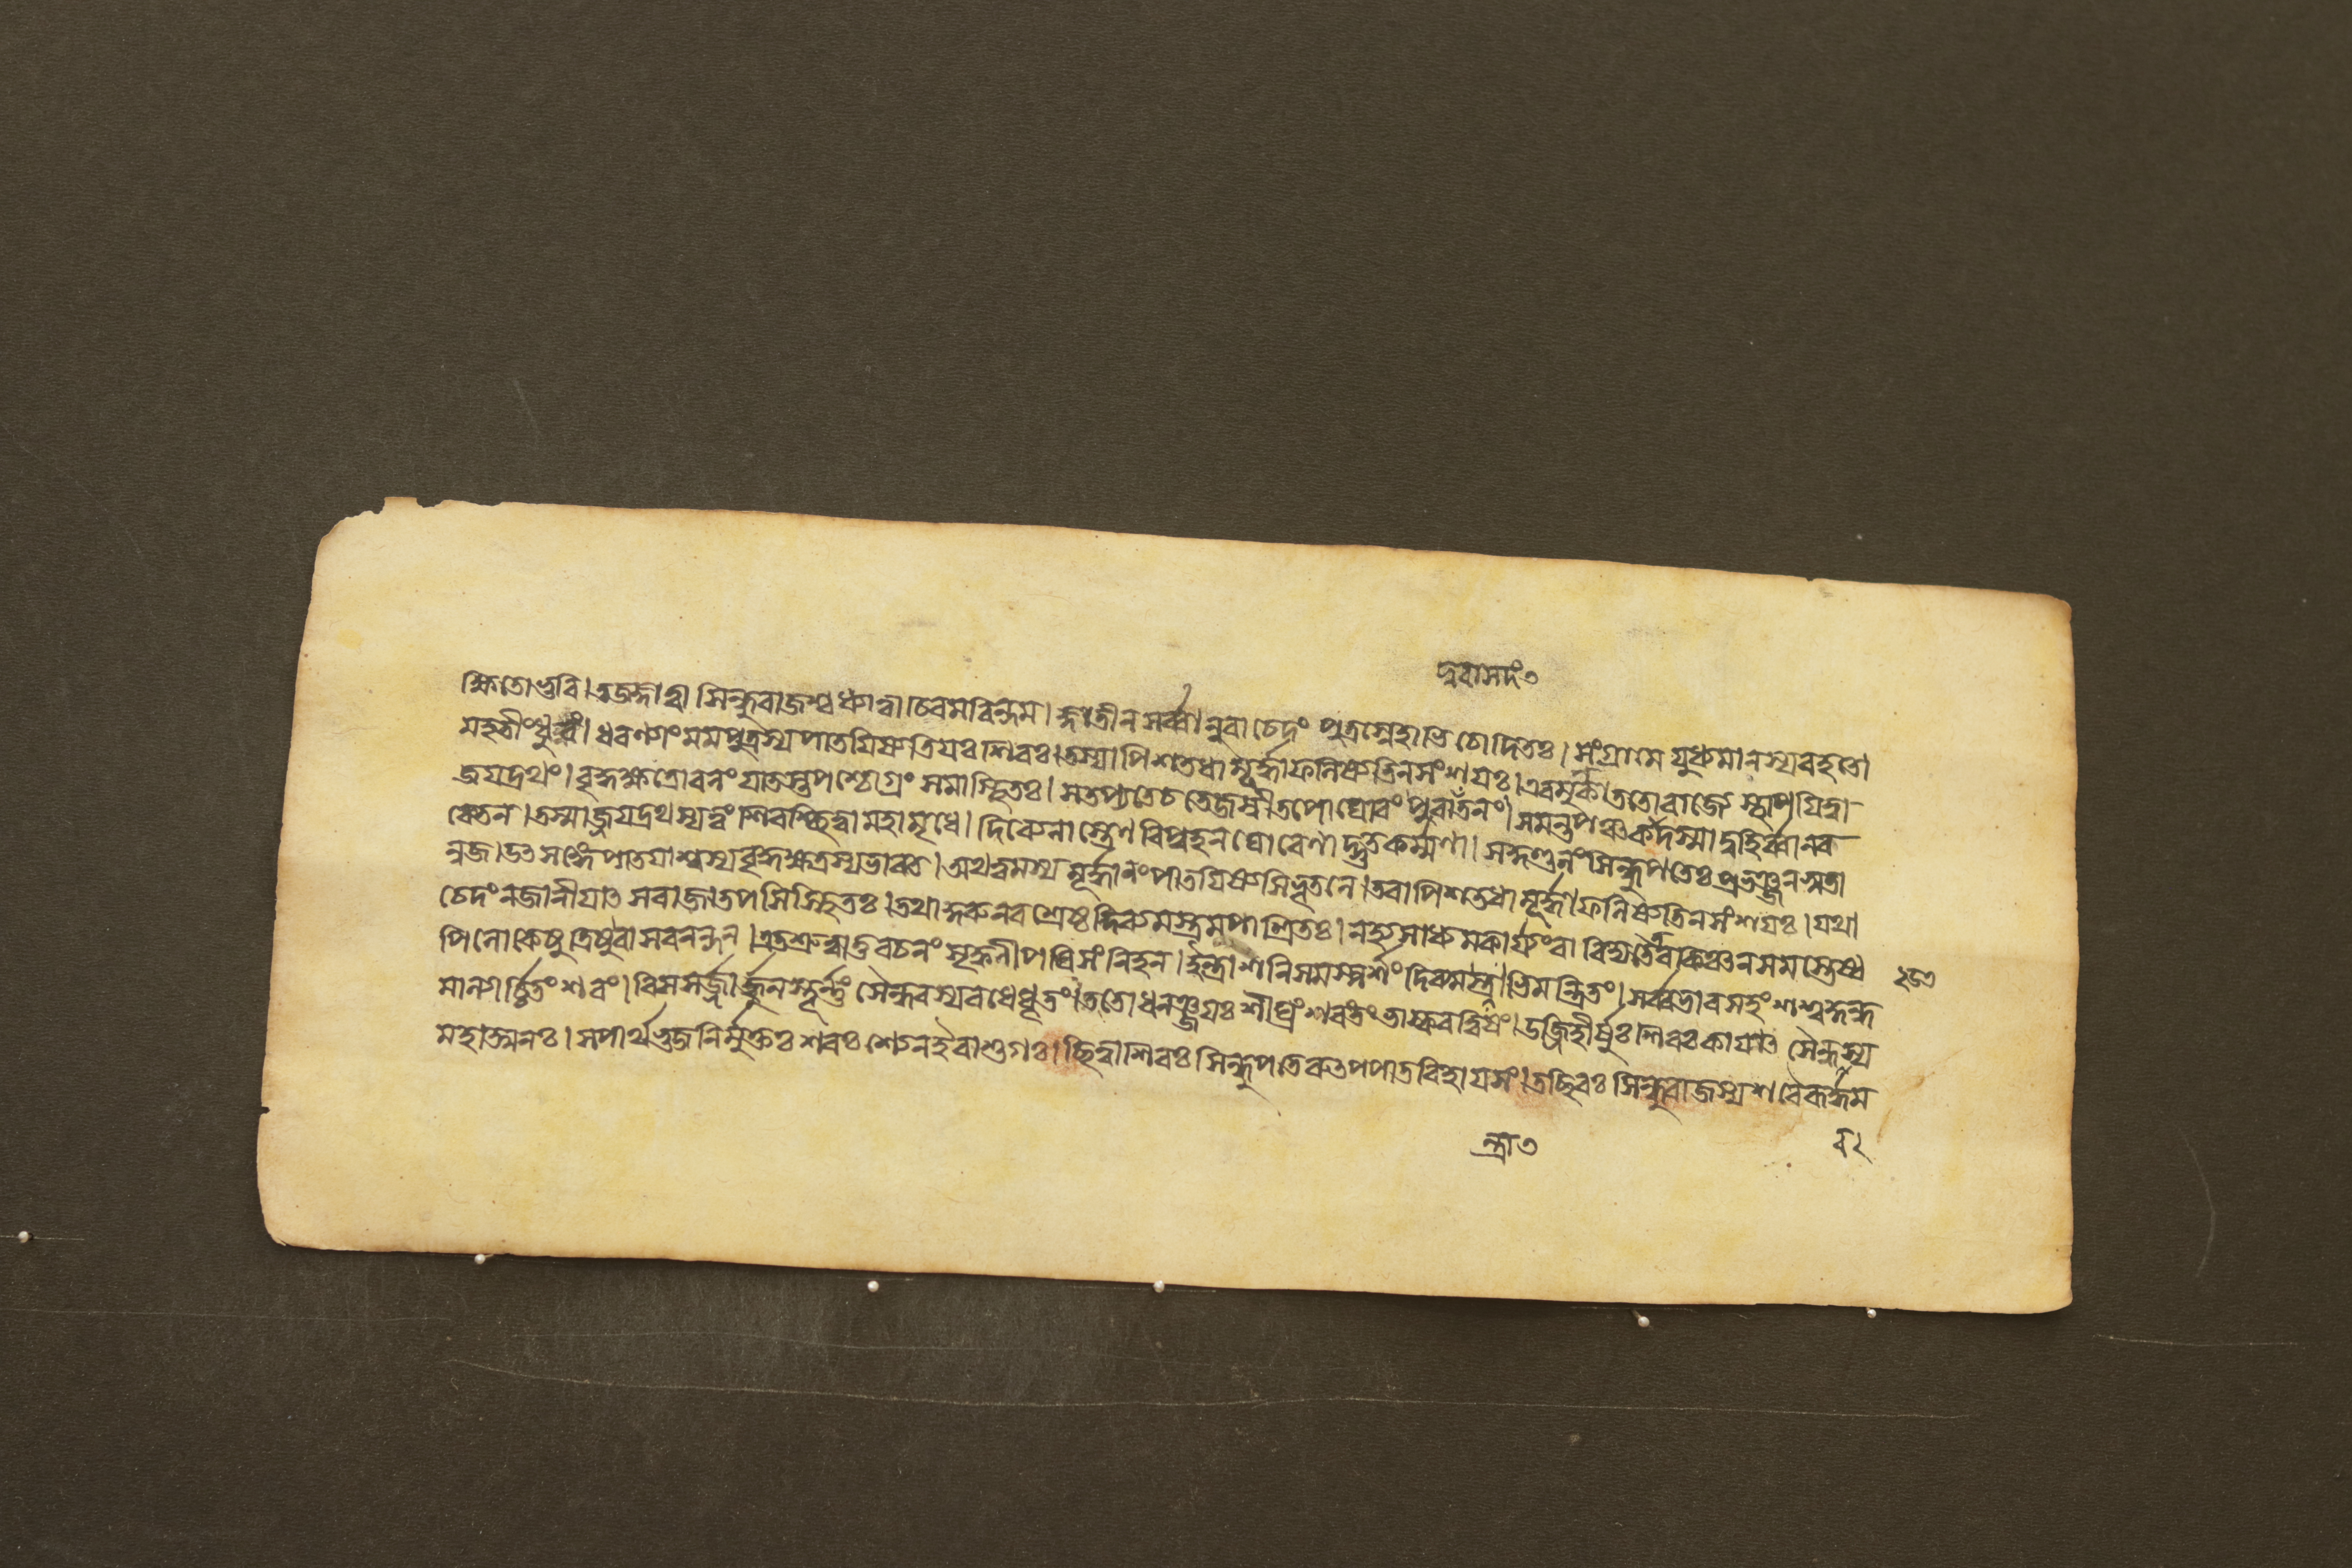 দুরাসদং ৩
ক্ষিতোভুবি। তচ্ছ্রুত্বা সিন্ধুরাজশ্চ ধ্যাত্বা চিরমরিন্দম। জ্ঞাতীন সর্ব্বানুবাচেদং পুত্রস্নেহাভিচোদিতঃ। সংগ্রামে যুধ্যমানস্য বহতো
মহতীং ধুরং। ধরণ্যাং মম পুত্রস্য পাতয়িষ্যতি যঃ শিরঃ। তস্যাপি শতধা মূর্দ্ধা ফলিষ্যতি ন সংশয়ঃ। এবমুক্ত্বা ততো রাজ্যে স্থাপয়িত্বা
জয়দ্রথং। বৃদ্ধক্ষত্রো বনং যাতস্তপশ্চোগ্রং সমাস্থিতঃ। স তপ্যতে চ তেজস্বী তপো ঘোরং পুরাতনং। সমন্তপঞ্চকাদস্মাদ্বহির্ব্বানর
কেতন। তস্মাজ্জয়দ্রথস্য ত্বং শিরশ্ছিত্বা মহামৃধে। দিব্যেনাস্ত্রেণ রিপুহন ঘোরেণাদ্ভুতকর্ম্মণা। সকুণ্ডলং সিন্ধুপতেঃ প্রভঞ্জনসুতা
নুজ। উৎসঙ্গে পাতয়াশ্বস্য বৃদ্ধক্ষত্রস্য ভারত। অথ ত্বমস্য মূর্দ্ধানং পাতয়িষ্যসি ভূতলে। তবাপি শতধা মূর্দ্ধা ফলিষ্যতি ন সংশয়ঃ। যথা
চেদং ন জানীয়াৎ স রাজা তপসি স্থিতঃ। তথা কুরু শ্রেষ্ঠ দিব্যমস্ত্রমপাশ্রিতঃ। ন হ্যসাধ্যমকার্য্যং বা বিদ্যতে তব কিঞ্চন সমস্তেষ্ব
পি লোকেষু ত্রিষু বাসবনন্দন। এতৎ শ্রুত্বা তু বচনং সৃক্কণী পরিসংলিহন। ইন্দ্রাশনিসমস্পর্শং দিব্যমস্ত্রাভিমন্ত্রিতং। সর্ব্বভারসহং শশ্বদ্গন্ধ
মাল্যার্চ্চিতং শরং। বিসসর্জ্জার্জ্জুনস্তূর্ণং সৈন্ধবস্য বধে ধৃতং। ততো ধনঞ্জয়ঃ শীঘ্রং শরং তং ভাস্করত্বিষং। উজ্জিহীর্ষুঃ শিরঃ কায়াৎ সৈন্ধবস্য
মহাত্মনঃ। স পার্থভুজনির্মুক্তঃ শরঃ শ্যেন ইবাশুগঃ। ছিত্বা শিরঃ সিন্ধুপতেরুৎপপাত বিহায়সং। তচ্ছিরঃ সিন্ধুরাজস্য শরৈরূর্দ্ধম